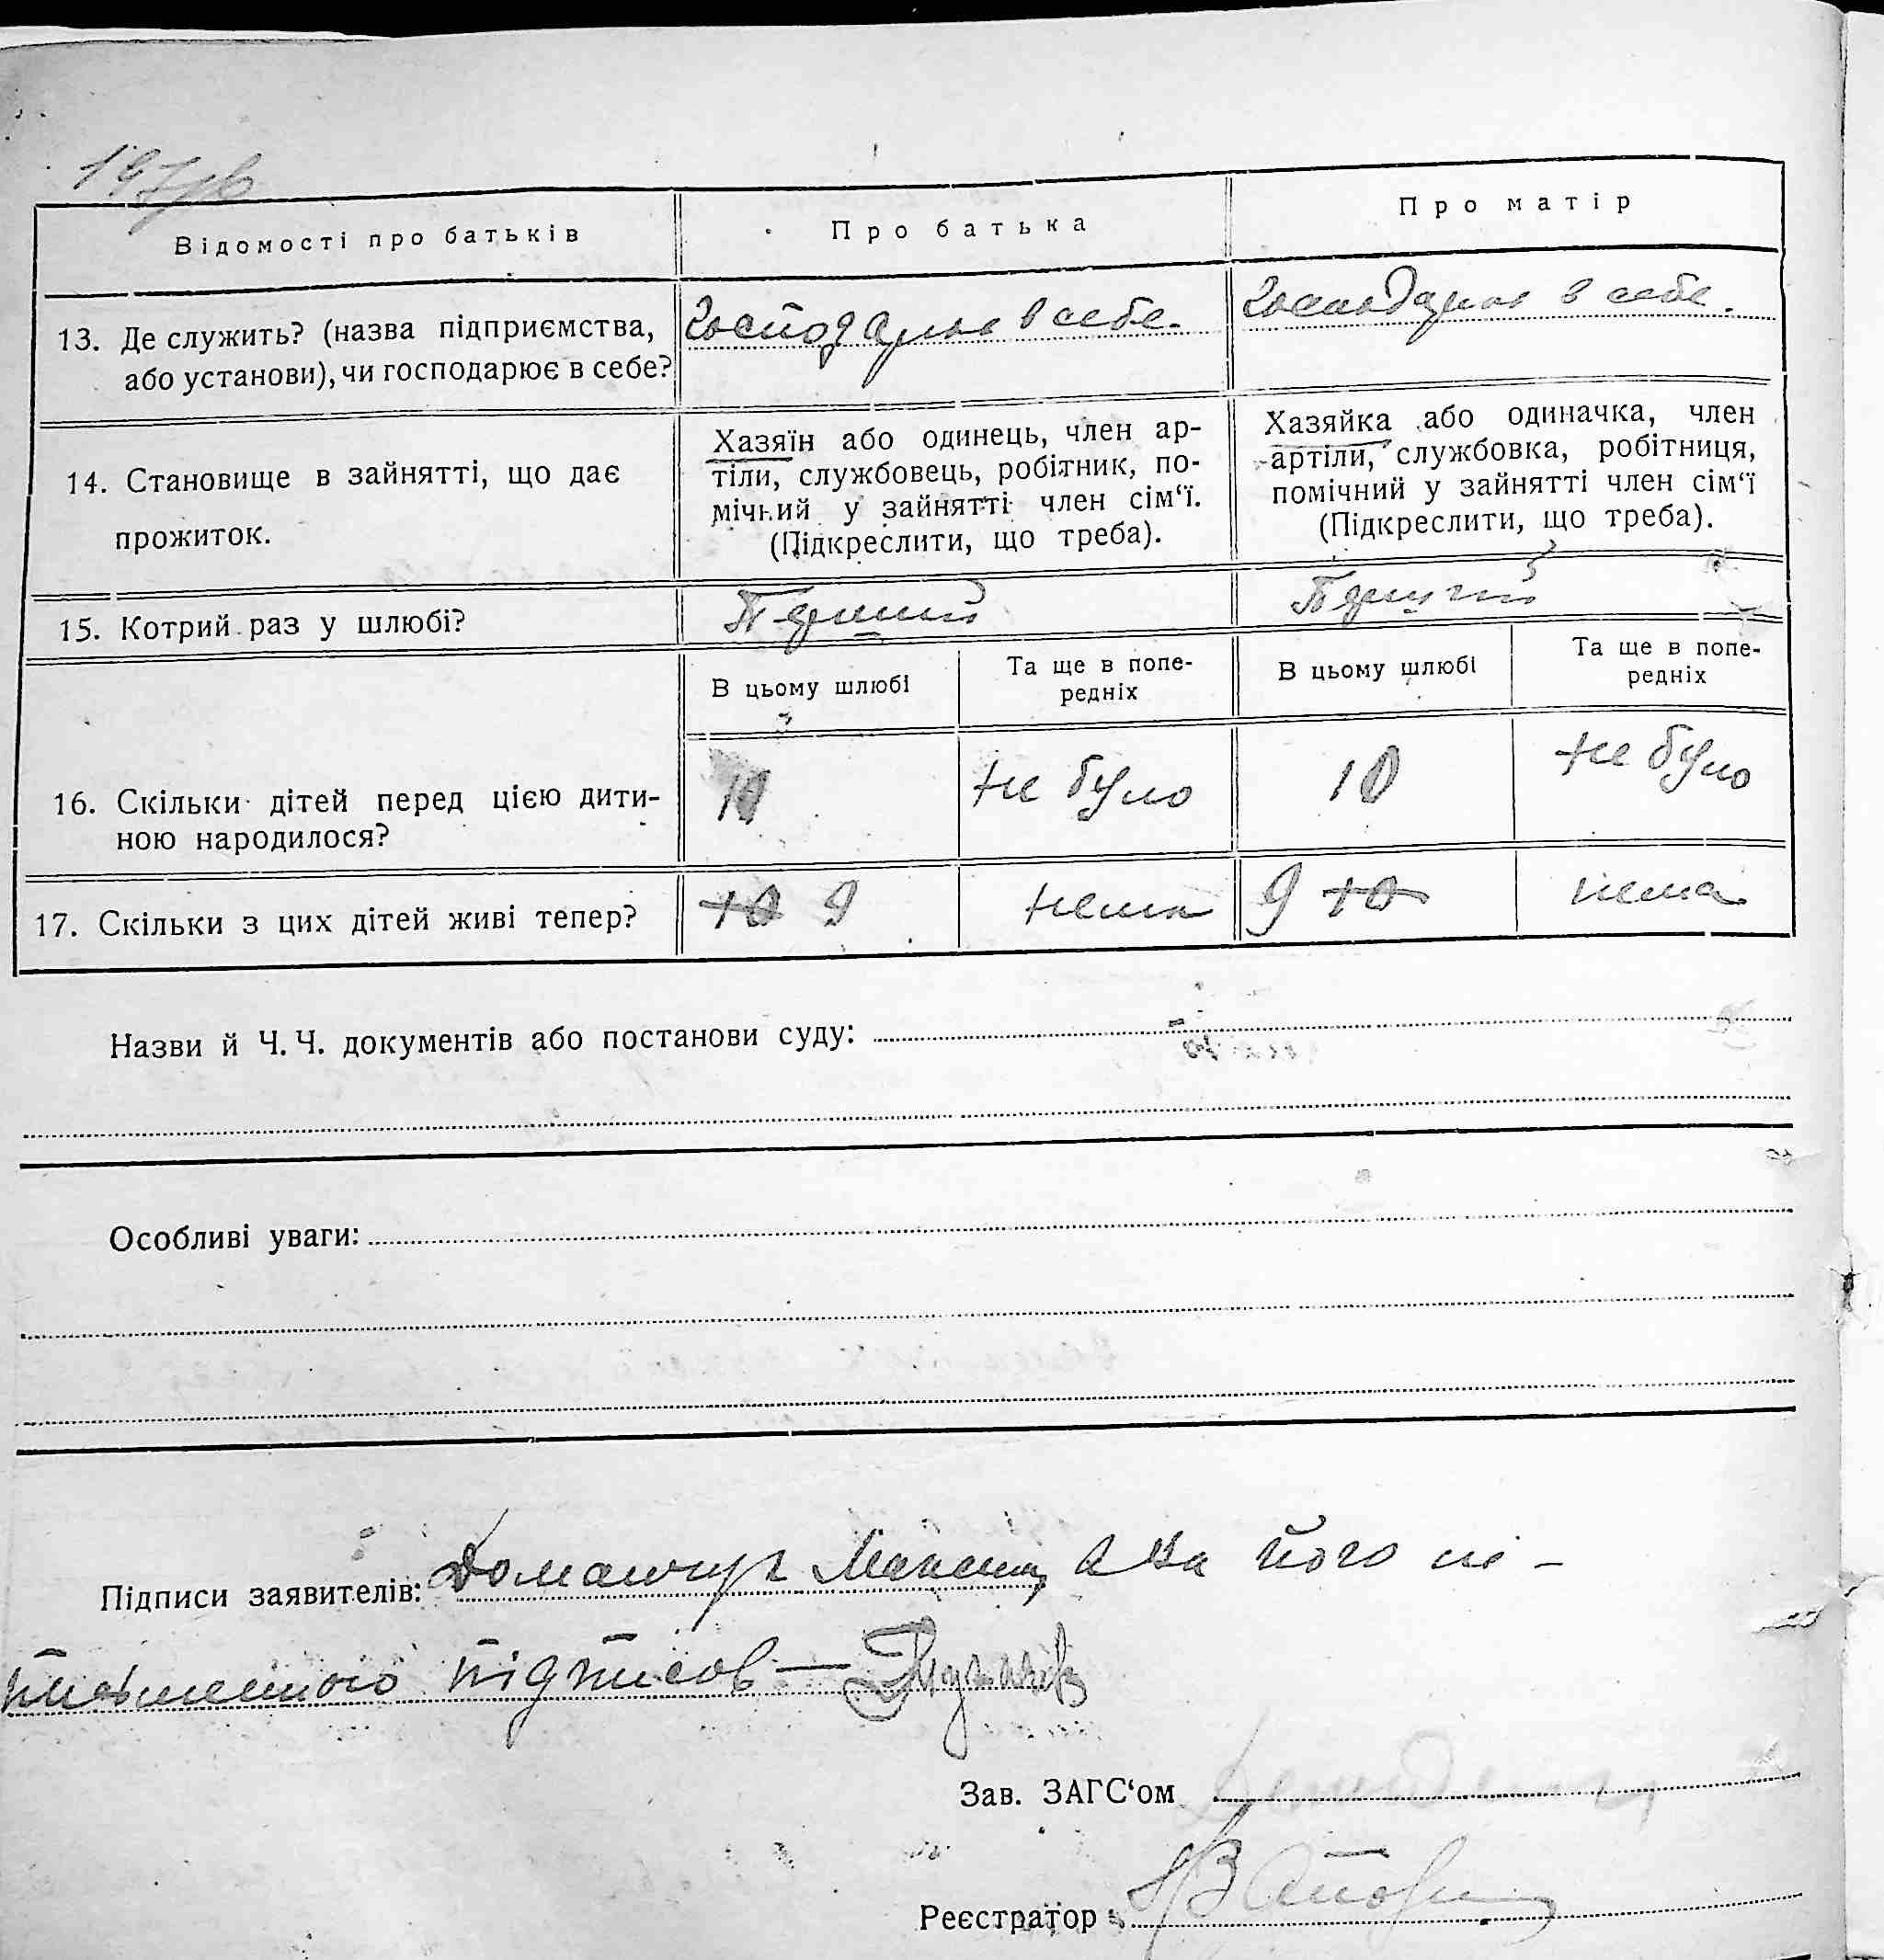 Відомості про батьків
Про батька
Про матір
13. Де служить? (назва підприємства,
або установи), чи господарює в себе?
господарює в себе.
господарює в себе.
14. Становище в зайнятті, що дає
прожиток.
Хазяїн або одинець, член ар-
тіли, службовець, робітник, по-
мічний у зайнятті член сім‘ї.
(Підкреслити, що треба).
Хазяйка або одиначка, член
артіли, службовка, робітниця,
помічний у зайнятті член сім‘ї
(Підкреслити, що треба).
15. Котрий раз у шлюбі?
В цьому шлюбі
Та ще в попе-
редніх
В цьому шлюбі
Та ще в попе-
редніх
16. Скільки дітей перед цією дити-
ною народилося?
10
не було
10
не було
17. Скільки з цих дітей живі тепер?
10 9
нема
9 10
нема
Назви й Ч. Ч. документів або постанови суду:
Особливі уваги:
Підписи заявителів: а за його не-
письменного підписав —
Зав. ЗАГС‘ом
Реєстратор